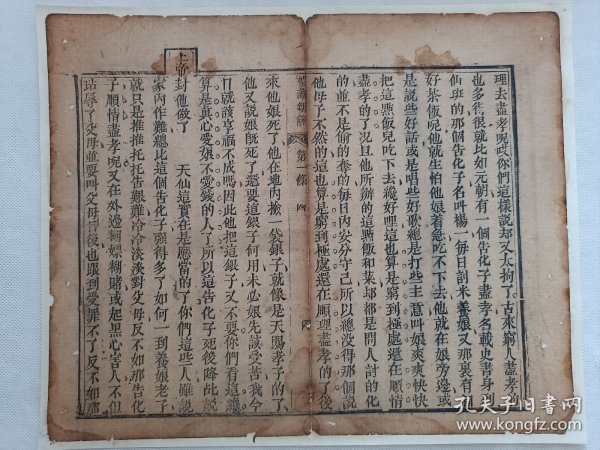 理去盡孝呢哎你們這樣說却又太拘了古來窮人盡孝的
也多得狠就比如元朝有一個告化子盡孝名載史書身列
仙班的那個告化子名叫楊一每日討米養娘又那裏有
好茶飯呢他就生怕他娘着急吃不下去他就在娘旁邊或
是說些好話或是唱些好歌總是打些主意叫娘爽爽快快
把這㸃飯兒吃下去纔好哩這也算是窮到極處還在順情
盡孝的了況且他所辦的這㸃飯和菜都是問人討的化
的並不是偷的奪的每日內安分守己所以總没得那個說
他母子不然的這也算是窮到極處還在順理盡孝的了後
新 第一條 四
來他娘死了他在地內撿一袋銀子就像是天賜孝子的了
他又說娘旣死了還要這銀子何用未必娘先該受苦我今
日就該享福不成嗎因此他把這銀子又不要你們看這纔
算是真心愛娘不愛錢的人了所以這告化子死後
上帝封他做了 天仙這實在是應當的了你們這些人雖說
家內作難總比這個告化子強得多了如何一到養娘老子
就只是推推托托告艱難冷冷淡淡對父母反不如那告化
子順情盡孝呢又在外邊糊嫖糊賭或起黑心害人不但
玷辱了父母並要叫父母背後也跟到受罪不了反不如那
孔夫子旧书网
www.kongfz.com